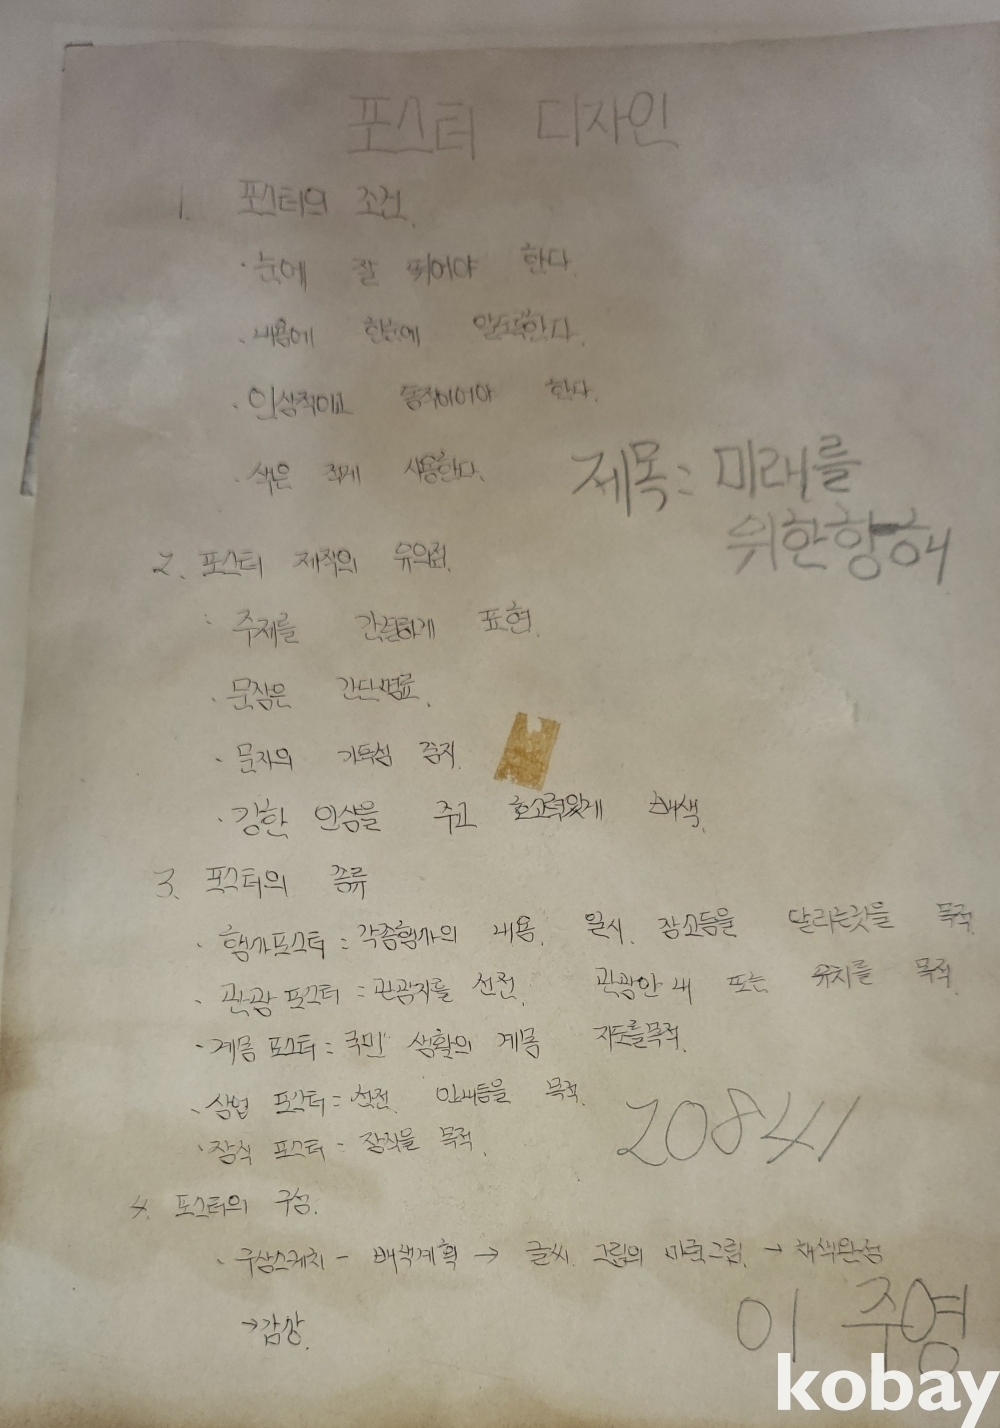 포스터 디자인
1. 포스터의 조건.
· 눈에 잘 띄어야 한다.
· 내용에 한눈에 알도록한다.
· 인상적이고 동적이어야 한다.
· 색은 적게 사용한다.
제목: 미래를
위한항해
2. 포스터 제작의 유의점.
· 주제를 간결하게 표현.
· 문장은 간단명료.
· 문자의 가독성 중지.
· 강한 인상을 주고 호소력있게 배색.
3. 포스터의 종류
· 행사포스터 : 각종행사의 내용. 일시. 장소등을 알리는것을 목적
· 관광 포스터 : 관광지를 선전. 관광안내 또는 유치를 목적.
· 계몽 포스터 : 국민 생활의 계몽 지도를목적.
· 상업 포스터 : 선전. 안내등을 목적.
· 장식 포스터 - 장식을 목적.
20841
4. 포스터의 구성.
· 구상스케치 - 배색계획 → 글씨. 그림의 밑그림. → 채색완성
→감상.
이 주영
kobay